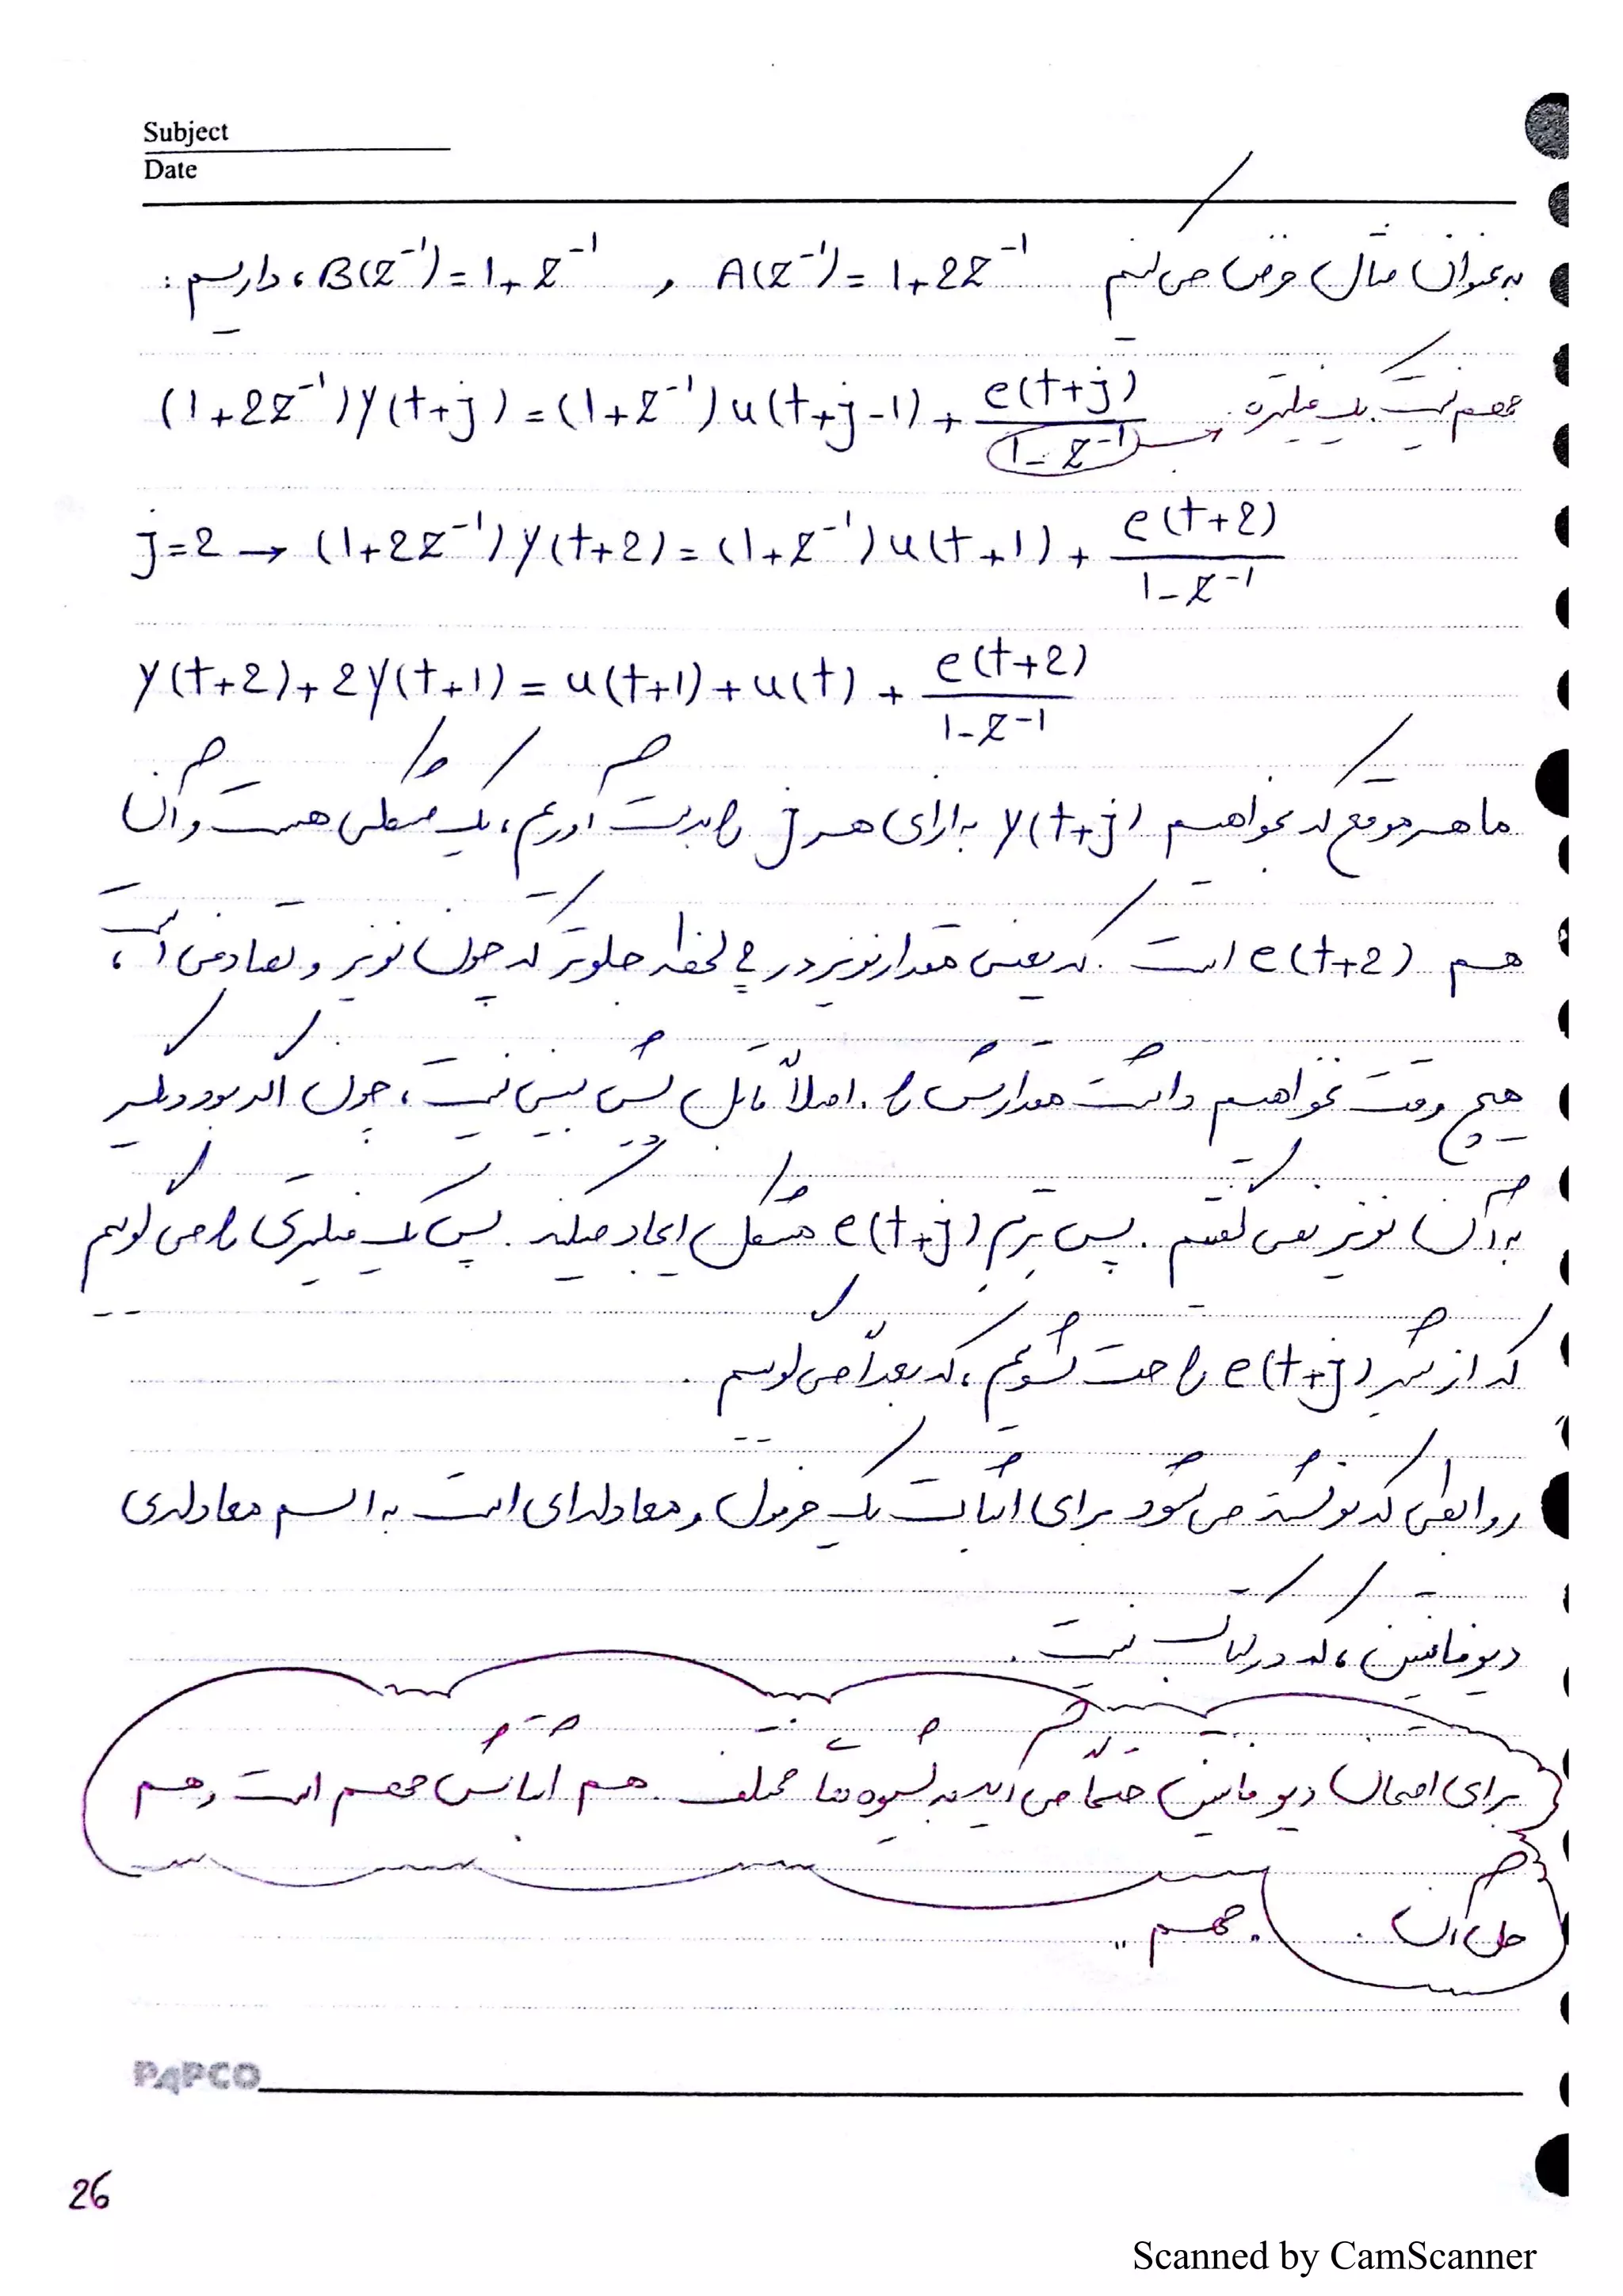 Subject
Date
به عنوان مثال فرض می‌کنیم A(z⁻¹) = 1+2z⁻¹ و B(z⁻¹) = 1+z⁻¹ ، داریم :
(1+2z⁻¹)y(t+j) = (1+z⁻¹)u(t+j-1) + e(t+j)/(1-z⁻¹) → مهم نیست یک فیلتره
j=2 → (1+2z⁻¹)y(t+2) = (1+z⁻¹)u(t+1) + e(t+2)/(1-z⁻¹)
y(t+2)+2y(t+1) = u(t+1)+u(t) + e(t+2)/(1-z⁻¹)
ما هر موقع که بخواهیم y(t+j) به ازای هر j را بدست آوریم ، یک مشکلی هست و آن
هم e(t+2) است . که یعنی مقدار نویز در 2 لحظه جلوتر که چون نویز و تصادفی است ،
هیچ وقت نخواهیم دانست مقدارش را . اصلاً قابل پیش بینی نیست ، چون اگر بود دیگر
به آن نویز نمی گفتیم . پس ترم e(t+j) مشکل ایجاد میکند . پس یک فیلتری را می گوییم
که از شر e(t+j) راحت شویم ، که بعداً می گوییم .
روابطی که نوشته می شود برای اثبات یک فرمول و معادله‌ای است به اسم معادله‌ی
دیوفانتین ، که در کتاب نیست .
برای امتحان دیوفانتین حتماً می آید به شیوه ها مختلف . هم اثباتش مهم است و هم
حل آن . مهم "
PAPCO
26
Scanned by CamScanner